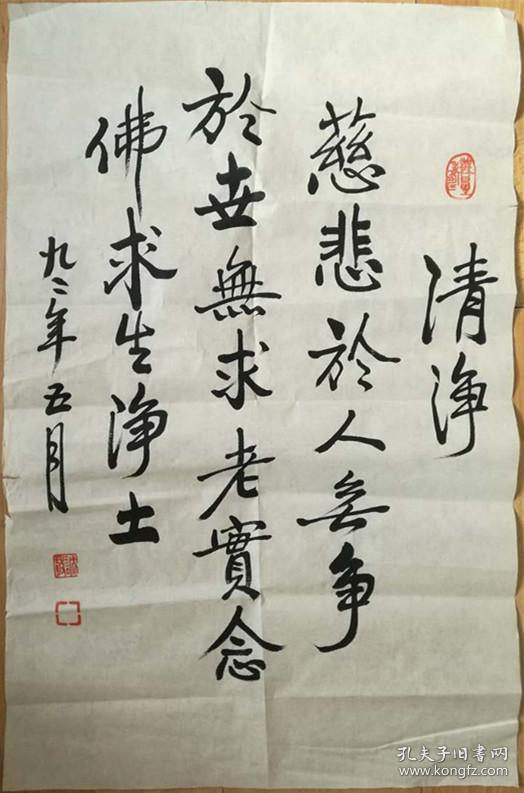 清浄
慈悲於人無争
於世無求老實念
佛求生浄土
九二年五月
孔夫子旧书网
www.kongfz.com